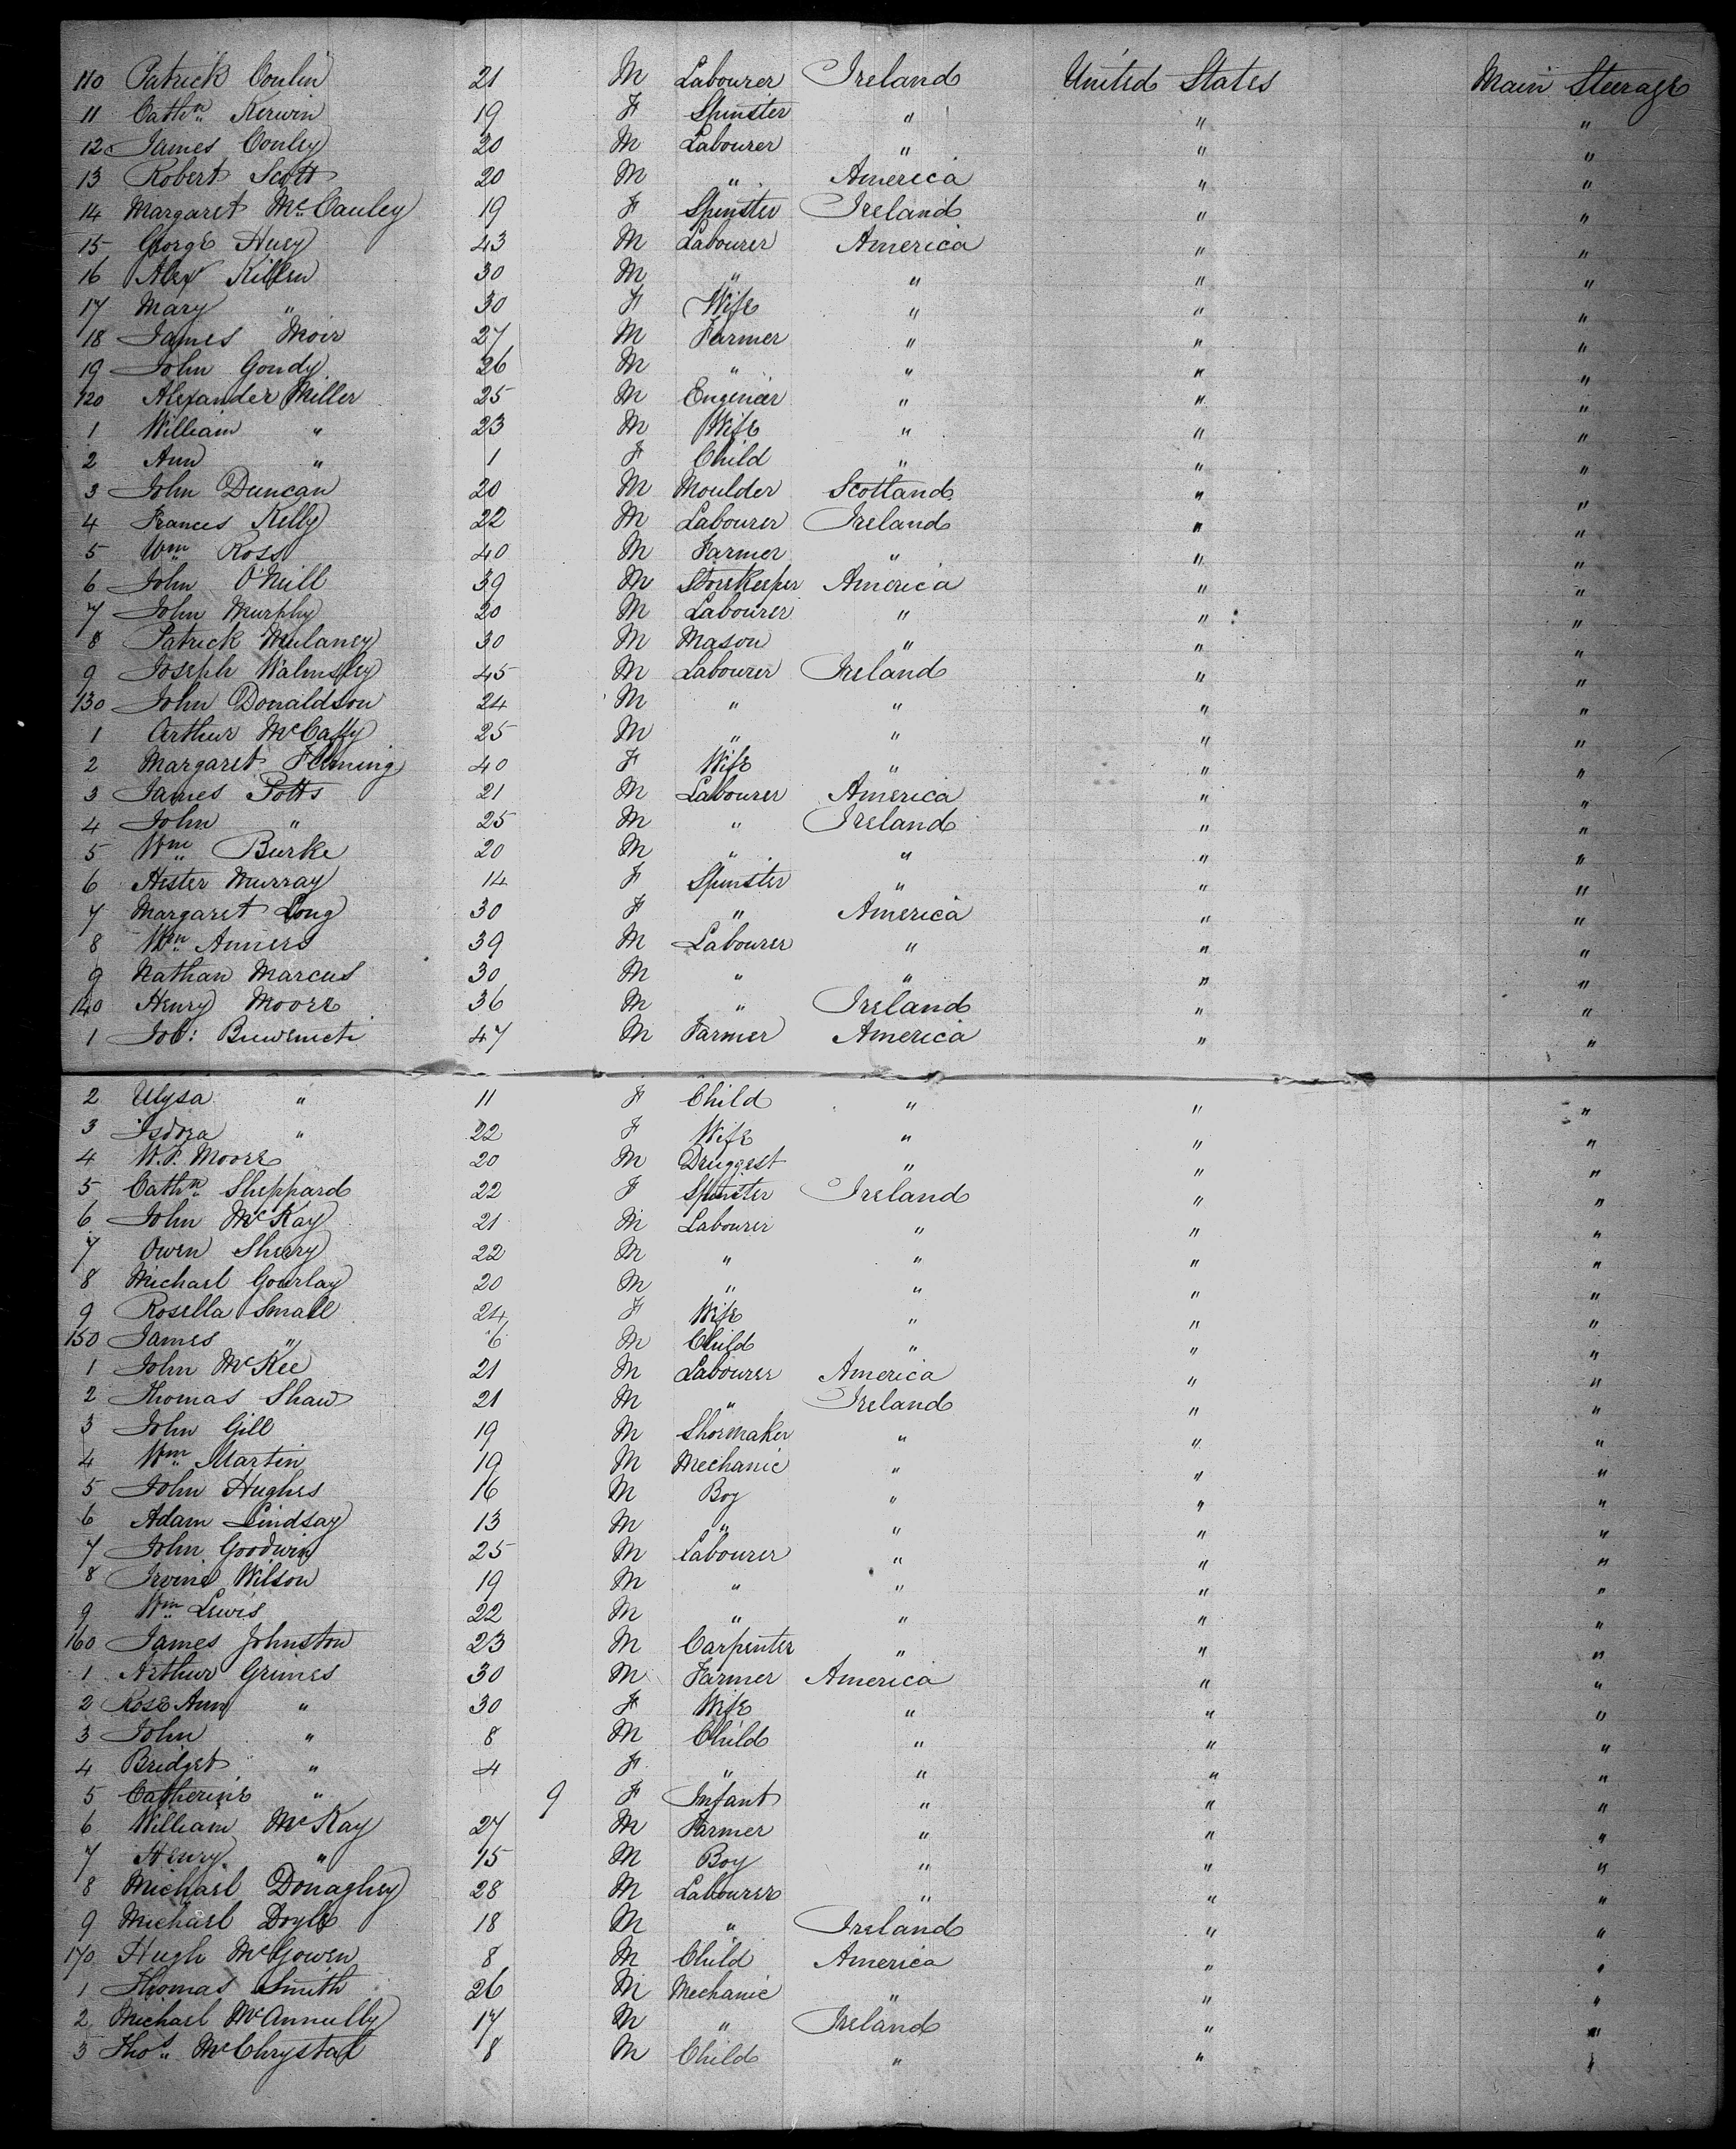 110 Patrick Conlin 21 M Labourer Ireland United States Main Steerage
11 Cathn Kerwin 19 F Spinster " " "
12 James Conley 20 M Labourer " " "
13 Robert Scott 20 M " America " "
14 Margaret McCauley 19 F Spinster Ireland " "
15 George Huey 43 M Labourer America " "
16 Alex Killen 30 M " " " "
17 Mary " 30 F Wife " " "
18 James Moir 27 M Farmer " " "
19 John Goudy 26 M " " " "
120 Alexander Miller 25 M Engineer " " "
1 William " 23 M Wife " " "
2 Ann " 1 F Child " " "
3 John Duncan 20 M Moulder Scotland " "
4 Frances Kelly 22 M Labourer Ireland " "
5 Wm Ross 40 M Farmer " " "
6 John O'Neill 39 M Storekeeper America " "
7 John Murphy 20 M Labourer " " "
8 Patrick Mulaney 30 M Mason " " "
9 Joseph Walmsley 45 M Labourer Ireland " "
130 John Donaldson 24 M " " " "
1 Arthur McCaffy 25 M " " " "
2 Margaret Fleming 40 F Wife " " "
3 James Potts 21 M Labourer America " "
4 John " 25 M " Ireland " "
5 Wm Burke 20 M " " " "
6 Hester Murray 14 F Spinster " " "
7 Margaret Long 30 F " America " "
8 Wm Anners 39 M Labourer " " "
9 Nathan Marcus 30 M " " " "
140 Henry Moore 36 M " Ireland " "
1 47 M Farmer America " "
2 Ulysa " 11 F Child " " "
3 Isdora " 22 F Wife " " "
4 W. J. Moore 20 M Druggest " " "
5 Cathn Sheppard 22 F Spinster Ireland " "
6 John McKay 21 M Labourer " " "
7 Owen Sherry 22 M " " " "
8 Michael Gourlay 20 M " " " "
9 Rosella Small 24 F Wife " " "
150 James " 6 M Child " " "
1 John McKee 21 M Labourer America " "
2 Thomas Shaw 21 M " Ireland " "
3 John Gill 19 M Shoemaker " " "
4 Wm Martin 19 M Mechanic " " "
5 John Hughes 16 M Boy " " "
6 Adam Lindsay 13 M " " " "
7 John Goodwin 25 M Labourer " " "
8 Irvine Wilson 19 M " " " "
9 Wm Lewis 22 M " " " "
160 James Johnston 23 M Carpenter " " "
1 Arthur Grimes 30 M Farmer America " "
2 Rose Ann " 30 F Wife " " "
3 John " 8 M Child " " "
4 Bridget " 4 F " " " "
5 Catherine " 9 F Infant " " "
6 William McKay 27 M Farmer " " "
7 Henry " 15 M Boy " " "
8 Michael Donaghey 28 M Labourer " " "
9 Michael Doyle 18 M " Ireland " "
170 Hugh McGowen 8 M Child America " "
1 Thomas Smith 26 M Mechanic " " "
2 Michael McAnnully 17 M " Ireland " "
3 Thos McChrystal 8 M Child " " "